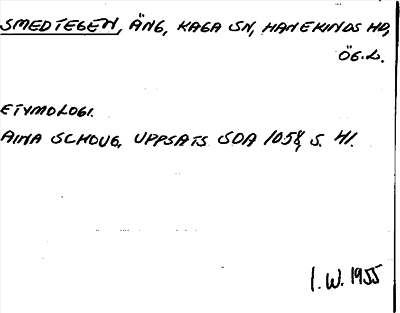 SMEDTEGEN, ÄNG, KAGA SN, HANEKINDS HD,
ÖG.L.
ETYMOLOGI.
AINA SCHOUG, UPPSATS SOA 1058, S. 41.
I.W. 1955